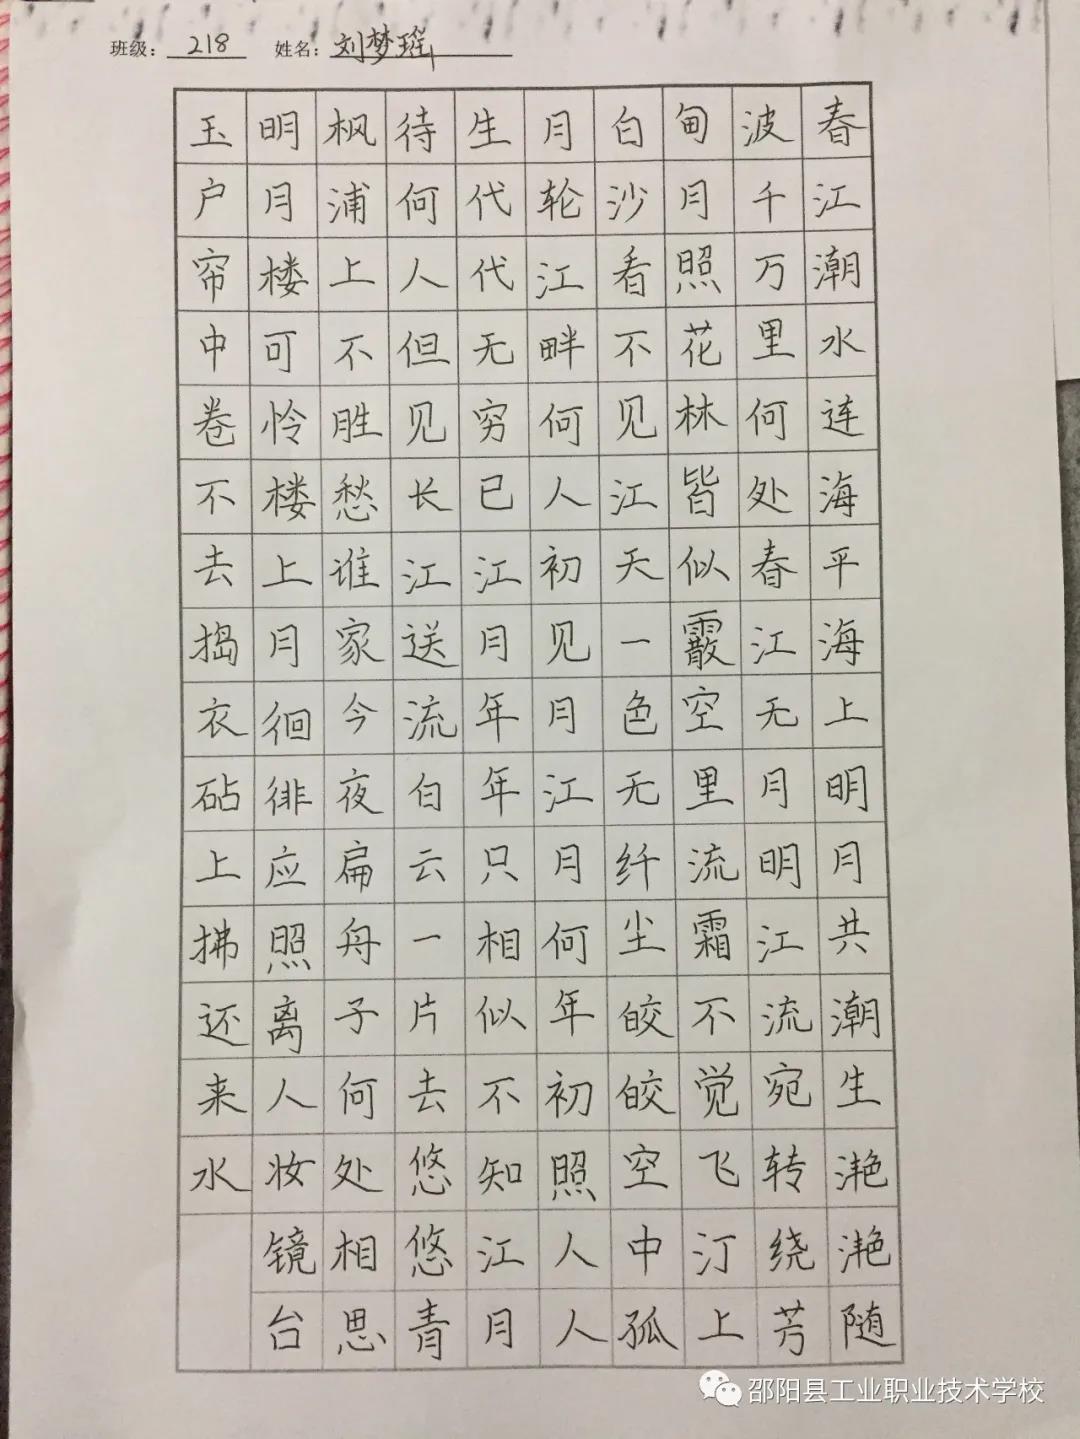 班级：218 姓名：刘梦瑶
春江潮水连海平海上明月共潮生滟滟随
波千万里何处春江无月明江流宛转绕芳
甸月照花林皆似霰空里流霜不觉飞汀上
白沙看不见江天一色无纤尘皎皎空中孤
月轮江畔何人初见月江月何年初照人人
生代代无穷已江月年年只相似不知江月
待何人但见长江送流白云一片去悠悠青
枫浦上不胜愁谁家今夜扁舟子何处相思
明月楼可怜楼上月徊徘应照离人妆镜台
玉户帘中卷不去捣衣砧上拂还来水
邵阳县工业职业技术学校